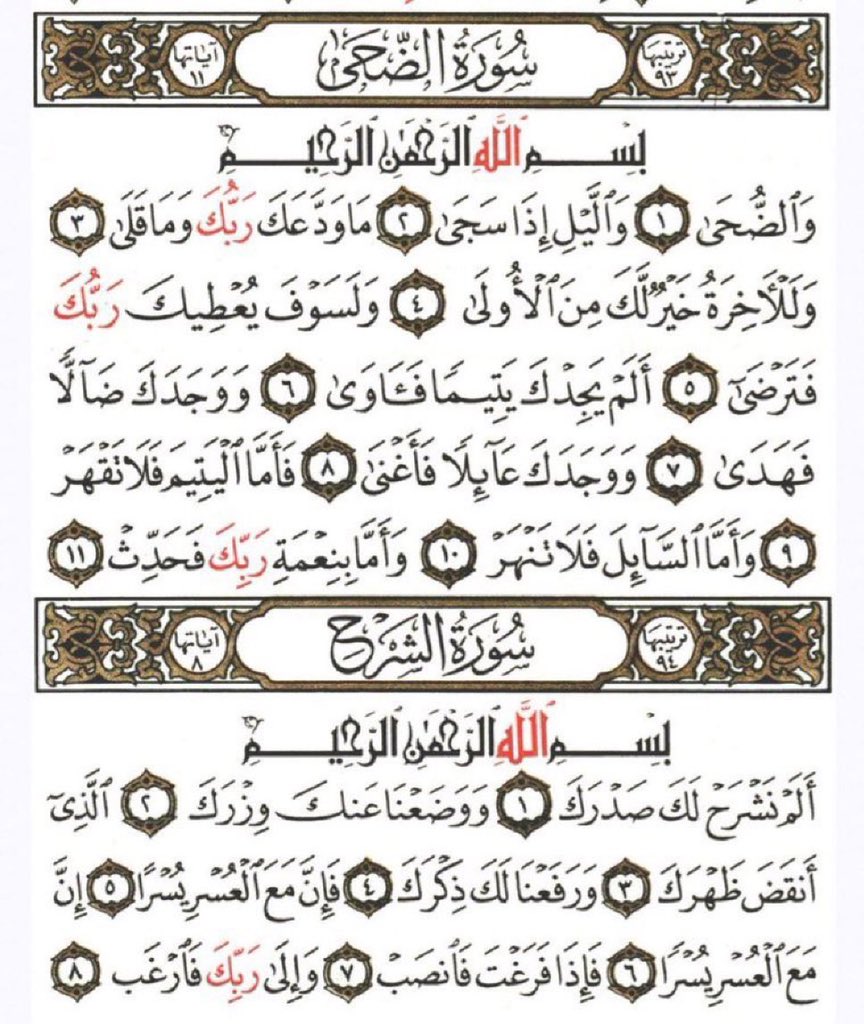 ترتيبها ٩٣ سُورَةُ الضُّحَىٰ آياتها ١١
بِسْمِ اللَّهِ الرَّحْمَٰنِ الرَّحِيمِ
وَٱلضُّحَىٰ ١ وَٱلَّيْلِ إِذَا سَجَىٰ ٢ مَا وَدَّعَكَ رَبُّكَ وَمَا قَلَىٰ ٣
وَلَلْأٓخِرَةُ خَيْرٌ لَّكَ مِنَ ٱلْأُولَىٰ ٤ وَلَسَوْفَ يُعْطِيكَ رَبُّكَ
فَتَرْضَىٰٓ ٥ أَلَمْ يَجِدْكَ يَتِيمًا فَـَٔاوَىٰ ٦ وَوَجَدَكَ ضَآلًّا
فَهَدَىٰ ٧ وَوَجَدَكَ عَآئِلًا فَأَغْنَىٰ ٨ فَأَمَّا ٱلْيَتِيمَ فَلَا تَقْهَرْ
٩ وَأَمَّا ٱلسَّآئِلَ فَلَا تَنْهَرْ ١٠ وَأَمَّا بِنِعْمَةِ رَبِّكَ فَحَدِّثْ ١١
ترتيبها ٩٤ سُورَةُ الشَّرْحِ آياتها ٨
بِسْمِ اللَّهِ الرَّحْمَٰنِ الرَّحِيمِ
أَلَمْ نَشْرَحْ لَكَ صَدْرَكَ ١ وَوَضَعْنَا عَنكَ وِزْرَكَ ٢ ٱلَّذِىٓ
أَنقَضَ ظَهْرَكَ ٣ وَرَفَعْنَا لَكَ ذِكْرَكَ ٤ فَإِنَّ مَعَ ٱلْعُسْرِ يُسْرًا ٥ إِنَّ
مَعَ ٱلْعُسْرِ يُسْرًا ٦ فَإِذَا فَرَغْتَ فَٱنصَبْ ٧ وَإِلَىٰ رَبِّكَ فَٱرْغَب ٨